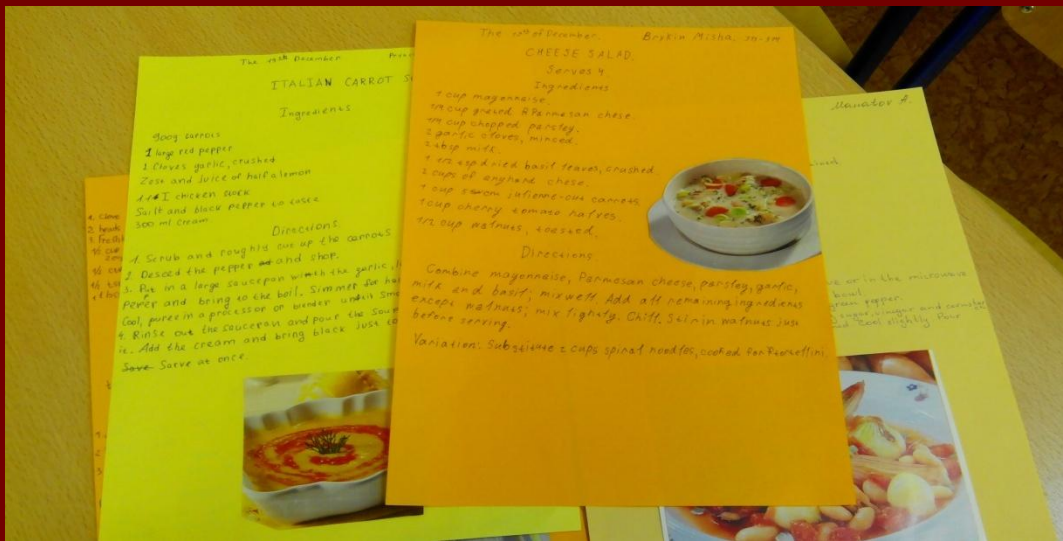 The 10th December.
ITALIAN CARROT
Ingredients
900g carrots
1 large red pepper
2 Cloves garlic, crushed
Zest and Juice of half a lemon
chicken stock
Sailt and black pepper to taste
300 ml cream
Directions.
1. Scrub and roughly cut up the carrots
2. Deseed the pepper and shop.
3. Put in a large saucepan with the garlic,
Peper and bring to the boil. Simmer for
Cool, puree in a processor or blender until
4. Rinse out the saucepan and pour the
it. Add the cream and bring black just to
Sarve at once
The of December. Boykin Misha.
CHEESE SALAD.
Serves 4.
Ingredients
1 cup mayonnaise.
1/4 cup grated Parmesan chese.
1/4 cup chopped parsley.
2 garlic cloves, minced.
2 tbsp milk.
1 1/2 tsp dried basil leaves, crushed
2 cups of anyhard chese.
1 cup julienne-cut carrots
1 cup cherry tomato halves.
1/2 cup walnuts, toasted.
Directions.
Combine mayonnaise, Parmesan cheese, parsley, garlic,
milk and basil; mix well. Add all remaining ingredients
except walnuts; mix lightly. Chill. Stir in walnuts just
before serving.
Variation: Substitute 2 cups spiral noodles, cooked for
Manatov A.
or in the microwave
bowl.
green pepper.
vinegar and
cool slightly Pour